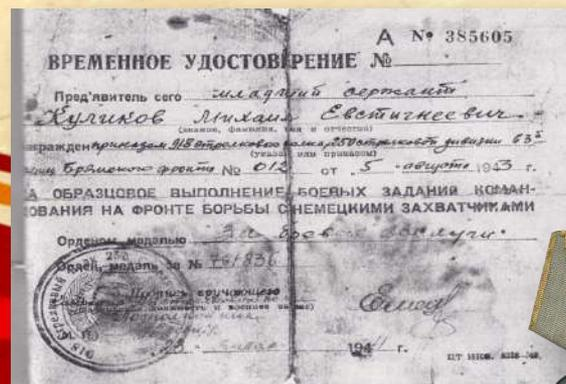 А № 385605
ВРЕМЕННОЕ УДОСТОВЕРЕНИЕ №
Пред'явитель сего младший сержант
Куликов Михаил Евстигнеевич
(звание, фамилия, имя и отчество)
награжден приказом 918 стрелкового полка 250 стрелковой дивизии 63й
(указом или приказом)
Брянского фронта № 012 от 5 августа 1943 г.
ЗА ОБРАЗЦОВОЕ ВЫПОЛНЕНИЕ БОЕВЫХ ЗАДАНИЙ КОМАН-
ДОВАНИЯ НА ФРОНТЕ БОРЬБЫ С НЕМЕЦКИМИ ЗАХВАТЧИКАМИ
Орденом, медалью За боевые заслуги.
Орден, медаль за №
Подпись вручающего
должность и военное звание)
194 г.